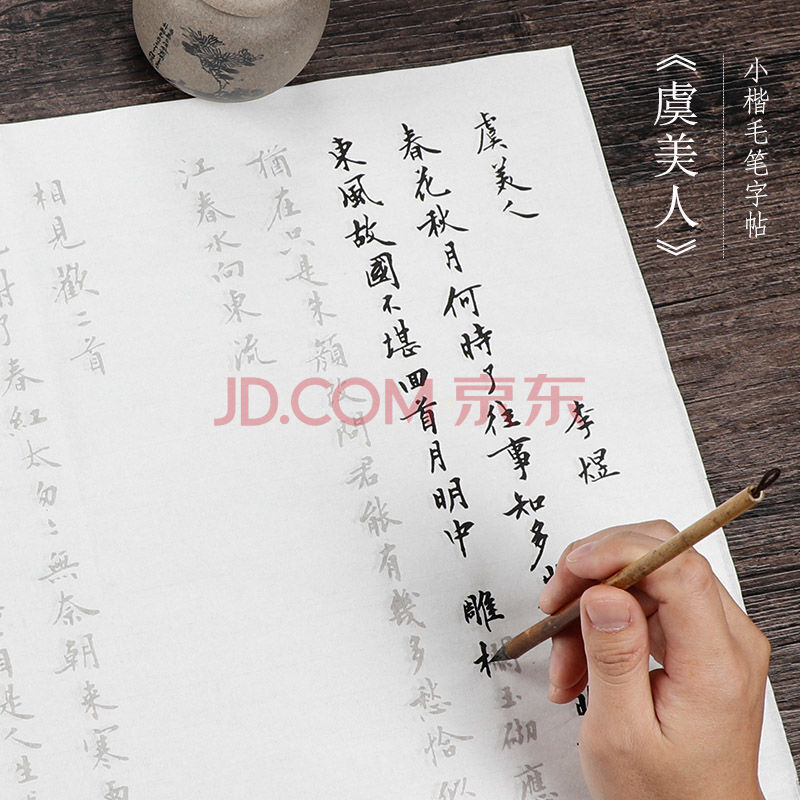 小楷毛笔字帖
《虞美人》
虞美人 李煜
春花秋月何時了往事知多
東風故國不堪回首月明中 雕欄玉砌應
猶在只是朱顏改問君能有幾多愁恰似
江春水向東流
相見歡二首
了春紅太匆匆無奈朝来寒雨
自是人生
JD.COM 京东